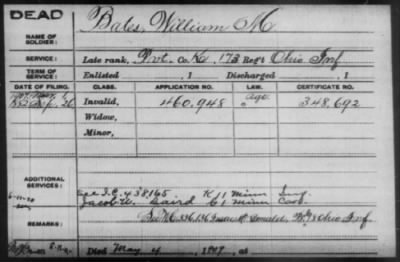 DEAD
NAME OF SOLDIER: Bates, William M
SERVICE: Late rank, Pvt. Co. K, 173 Reg't Ohio Inf
TERM OF SERVICE: Enlisted , 1 Discharged , 1
DATE OF FILING. CLASS. APPLICATION NO. LAW. CERTIFICATE NO.
Age
Invalid, 460,948 348,692
Widow,
Minor,
ADDITIONAL SERVICES:
See I.C. 438165. K 11 Minn Inf.
Jacob Baird C 1 Minn Cav.
REMARKS: Ohio Inf
Died May 4, 1909, at